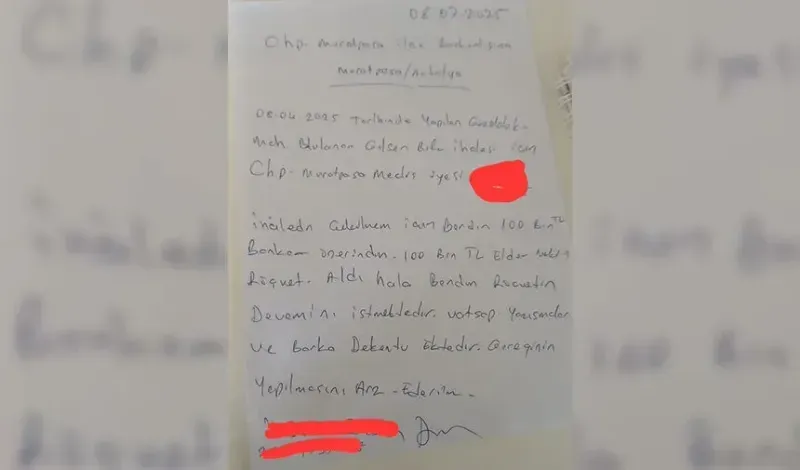 08.07.2025
Chp muratpaşa ilçe Başkanlığına
muratpaşa/Antalya
08.04.2025 Tarihinde Yapılan Güzeloluk
Mah Bulunan Büfe ihalesi için
Chp- muratpaşa Meclis üyesi
için Benden 100 Bin TL
Bankam üzerinden. 100 Bin TL Elden
Rüşvet. Aldı hala Benden Rüşvetin
Devamını istemektedir. votsap Yazışmaları
ve Banka Dekontu Ektedir. Gereğinin
Yapılmasını Arz -Ederim-